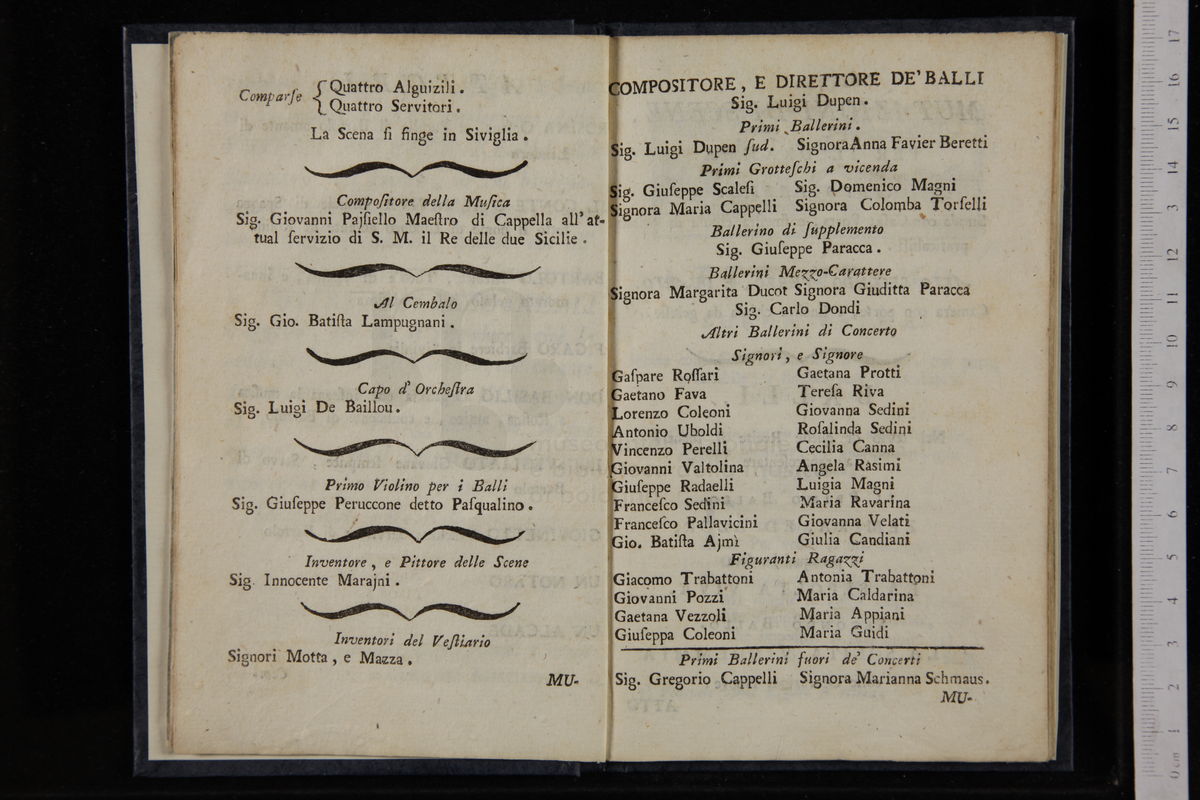 Comparſe { Quattro Alguizili.
Quattro Servitori.
La Scena ſi finge in Siviglia.
Compoſitore della Muſica
Sig. Giovanni Pajſiello Maeſtro di Cappella all' at-
tual ſervizio di S. M. il Re delle due Sicilie.
Al Cembalo
Sig. Gio. Batiſta Lampugnani.
Capo d' Orcheſtra
Sig. Luigi De Baillou.
Primo Violino per i Balli
Sig. Giuſeppe Peruccone detto Paſqualino.
Inventore, e Pittore delle Scene
Sig. Innocente Marajni.
Inventori del Veſtiario
Signori Motta, e Mazza.
MU-
COMPOSITORE, E DIRETTORE DE' BALLI
Sig. Luigi Dupen.
Primi Ballerini.
Sig. Luigi Dupen ſud. Signora Anna Favier Beretti
Primi Grotteſchi a vicenda
Sig. Giuſeppe Scaleſi Sig. Domenico Magni
Signora Maria Cappelli Signora Colomba Torſelli
Ballerino di ſupplemento
Sig. Giuſeppe Paracca.
Ballerini Mezzo-Carattere
Signora Margarita Ducot Signora Giuditta Paracca
Sig. Carlo Dondi
Altri Ballerini di Concerto
Signori, e Signore
Gaſpare Roſſari Gaetana Protti
Gaetano Fava Tereſa Riva
Lorenzo Coleoni Giovanna Sedini
Antonio Uboldi Roſalinda Sedini
Vincenzo Perelli Cecilia Canna
Giovanni Valtolina Angela Raſimi
Giuſeppe Radaelli Luigia Magni
Franceſco Sedini Maria Ravarina
Franceſco Pallavicini Giovanna Velati
Gio. Batiſta Ajmì Giulia Candiani
Figuranti Ragazzi
Giacomo Trabattoni Antonia Trabattoni
Giovanni Pozzi Maria Caldarina
Gaetana Vezzoli Maria Appiani
Giuſeppa Coleoni Maria Guidi
Primi Ballerini fuori de' Concerti
Sig. Gregorio Cappelli Signora Marianna Schmaus.
MU-
0 cm 1 2 3 4 5 6 7 8 9 10 11 12 13 14 15 16 17